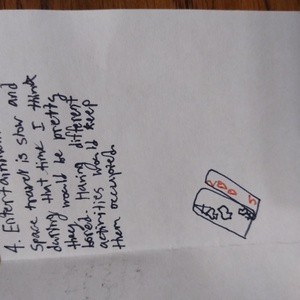 4. Entertainment
Space travel is slow and
during that time I think
they would be pretty
bored. Having different
activities would keep
them occupied.